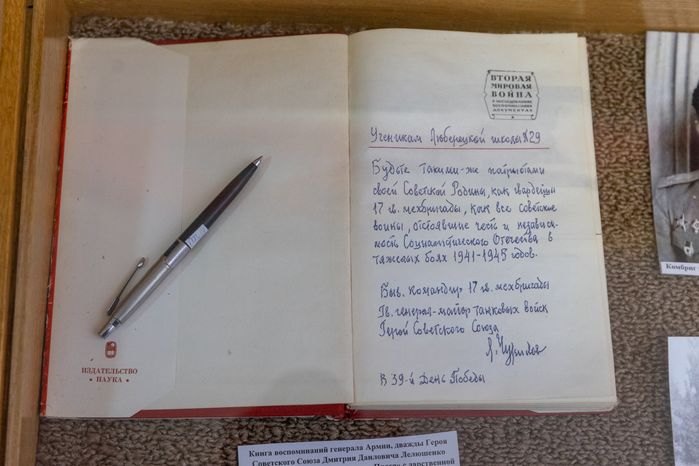 ВТОРАЯ
МИРОВАЯ
ВОЙНА
В ИССЛЕДОВАНИЯХ
ВОСПОМИНАНИЯХ
ДОКУМЕНТАХ
Ученикам Люберецкой школы №29
Будьте такими-же патриотами
своей Советской Родины, как гвардейцы
17 гв. мехбригады, как все советские
воины, отстоявшие честь и независи-
мость Социалистического Отечества в
тяжелых боях 1941-1945 годов.
Быв. командир 17 гв. мехбригады
Гв. генерал-майор танковых войск
Герой Советского Союза
В 39-й День Победы
ИЗДАТЕЛЬСТВО
• НАУКА •
Комбриг
Книга воспоминаний генерала Армии, дважды Героя
Советского Союза Дмитрия Даиловича Лелюшенко
с дарственной